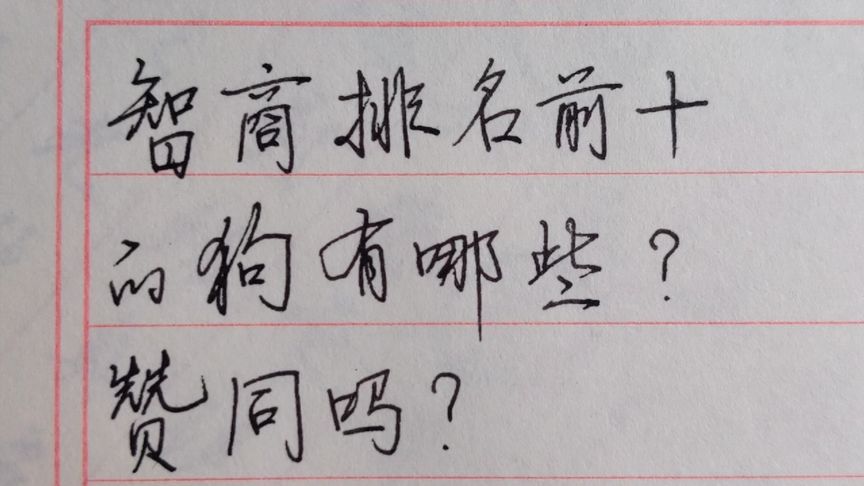 智商排名前十
的狗有哪些?
赞同吗?